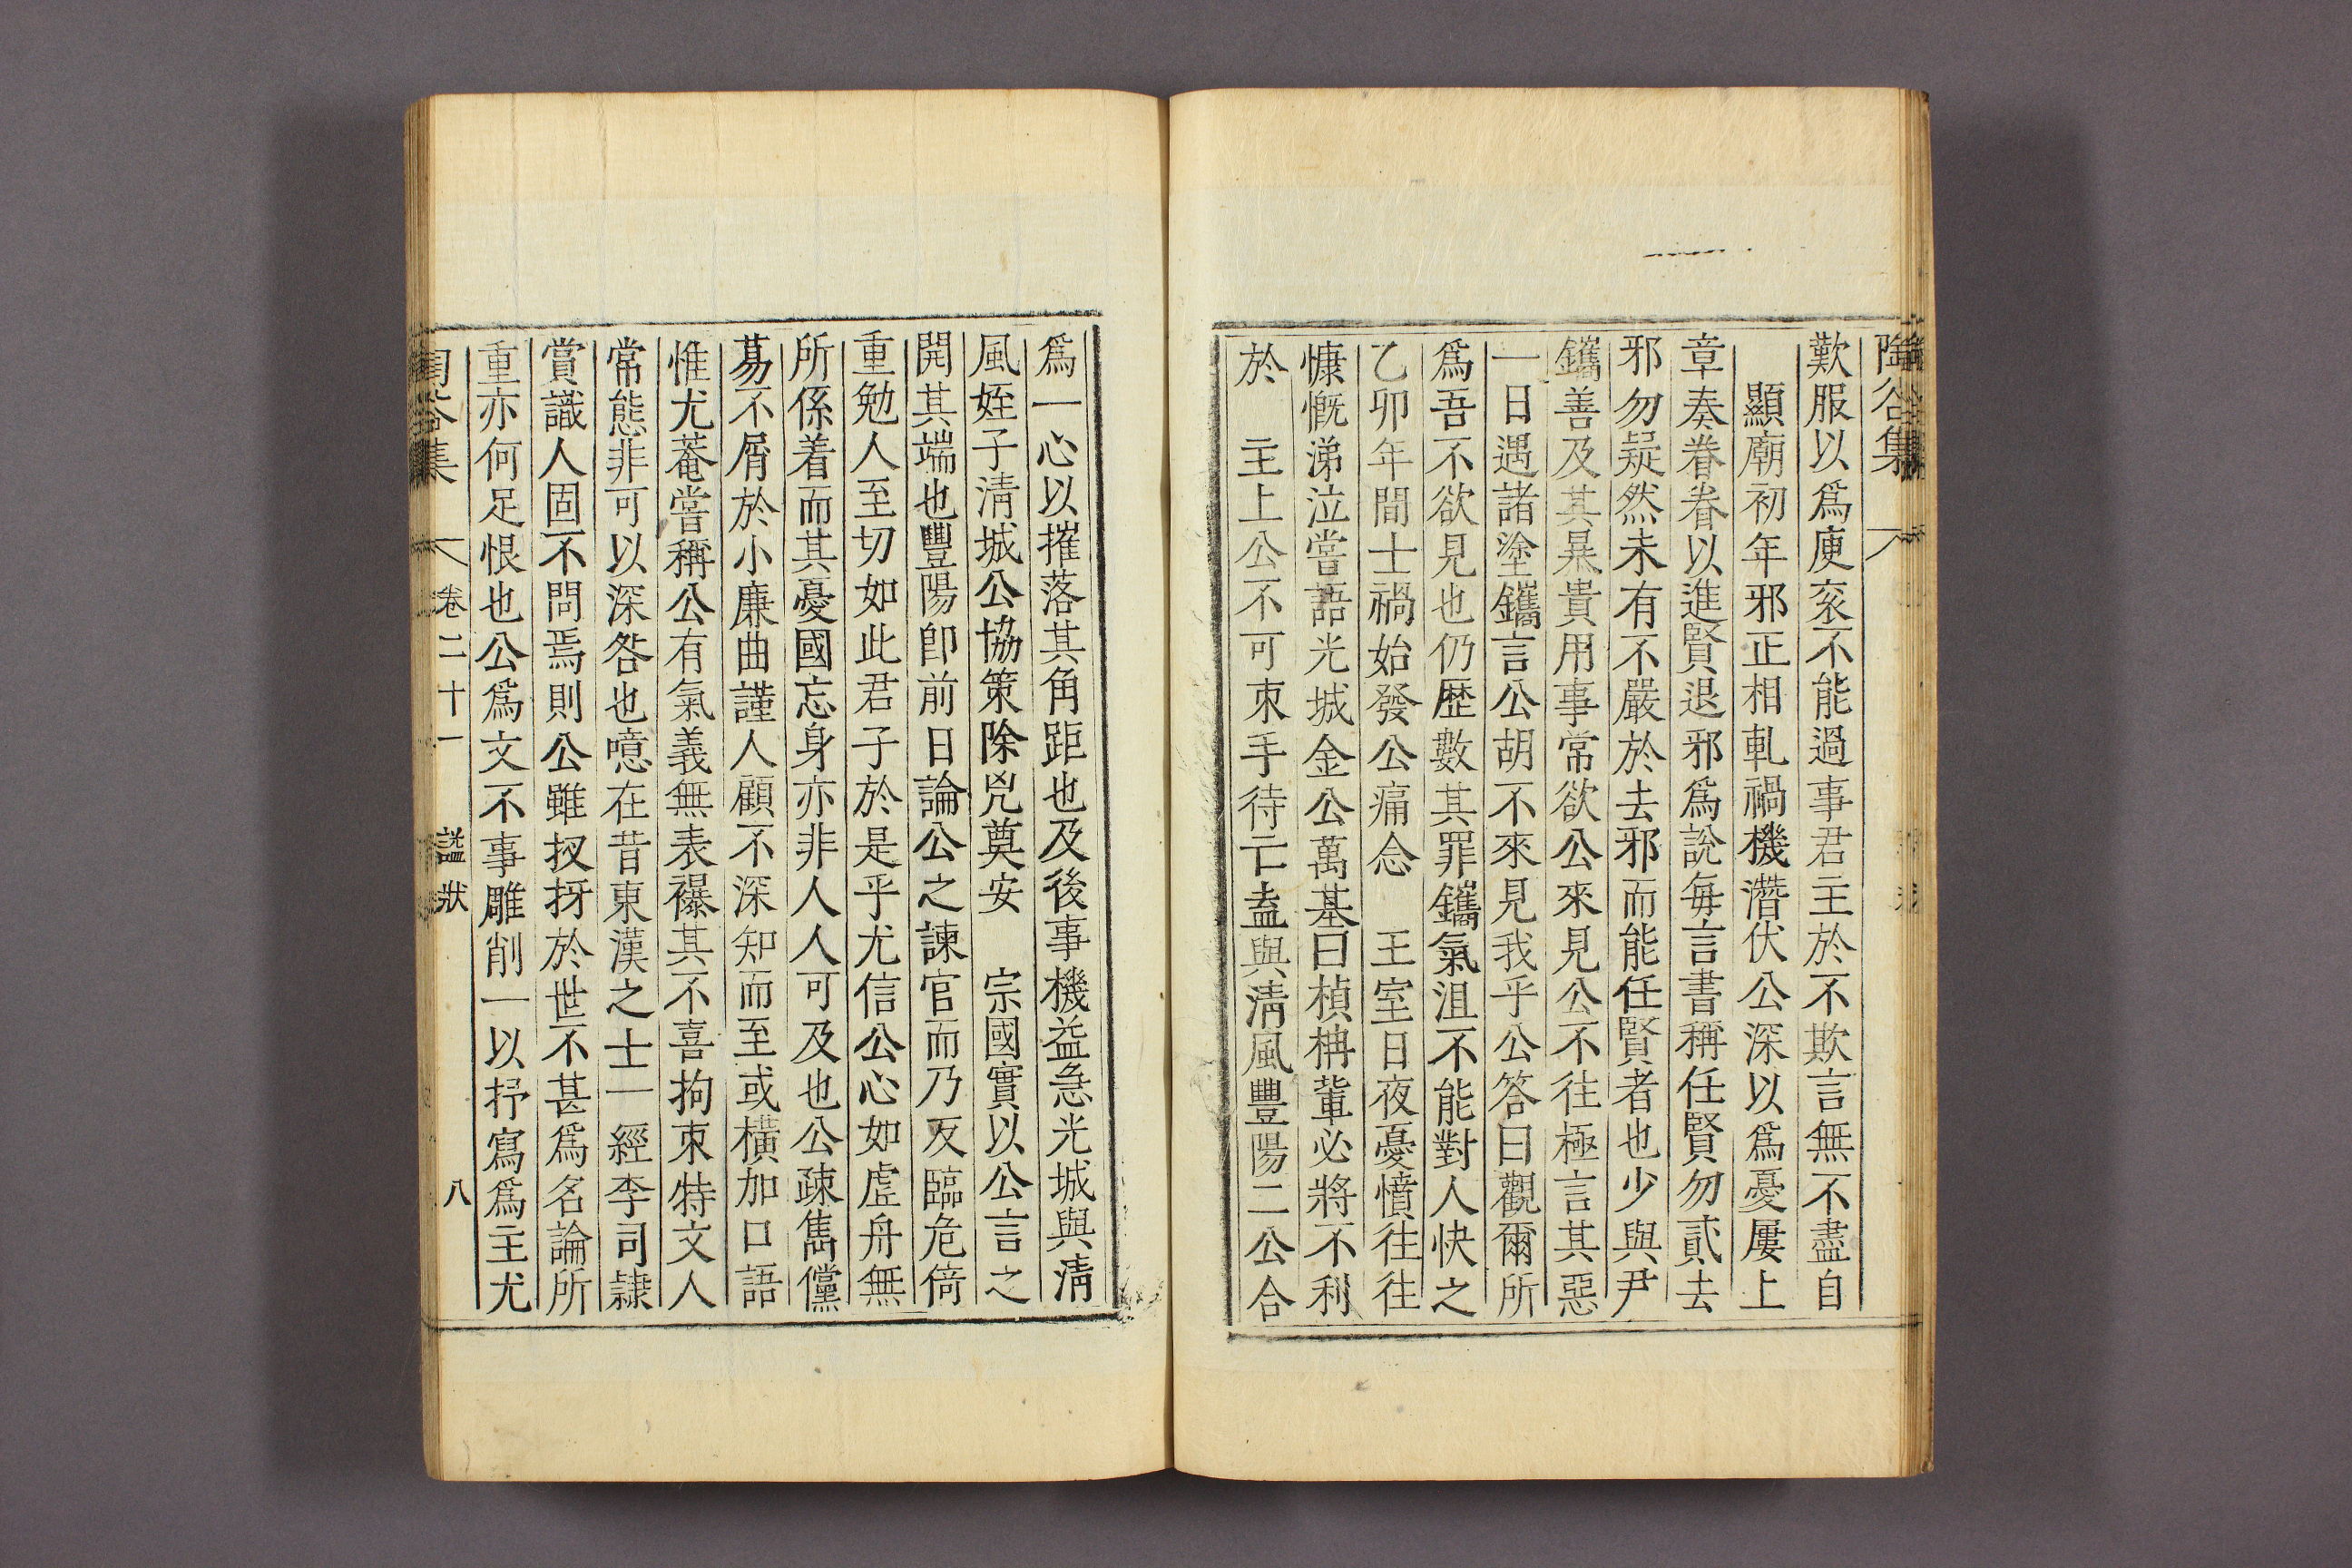 陶谷集
歎服以爲庾衮不能過事君主於不欺言無不盡自
顯廟初年邪正相軋禍機潛伏公深以爲憂屢上
章奏眷眷以進賢退邪爲說每言書稱任賢勿貳去
邪勿疑然未有不嚴於去邪而能任賢者也少與尹
鑴善及其暴貴用事常欲公來見公不往極言其惡
一日遇諸塗鑴言公胡不來見我乎公答曰觀爾所
爲吾不欲見也仍歷數其罪鑴氣沮不能對人快之
乙卯年間士禍始發公痛念 王室日夜憂憤往往
慷慨涕泣嘗語光城金公萬基曰楨枏輩必將不利
於 主上公不可束手待亡盍與淸風豐陽二公合
爲一心以摧落其角距也及後事機益急光城與淸
風姪子淸城公協策除兇奠安 宗國實以公言之
開其端也豐陽卽前日論公之諫官而乃反臨危倚
重勉人至切如此君子於是乎尤信公心如虛舟無
所係着而其憂國忘身亦非人人可及也公疎雋儻
蕩不屑於小廉曲謹人顧不深知而至或橫加口語
惟尤菴嘗稱公有氣義無表襮其不喜拘束特文人
常態非可以深咎也噫在昔東漢之士一經李司隷
賞識人固不問焉則公雖扠捓於世不甚爲名論所
重亦何足恨也公爲文不事雕削一以抒寫爲主尤
陶谷集 卷二十一 諡狀 八